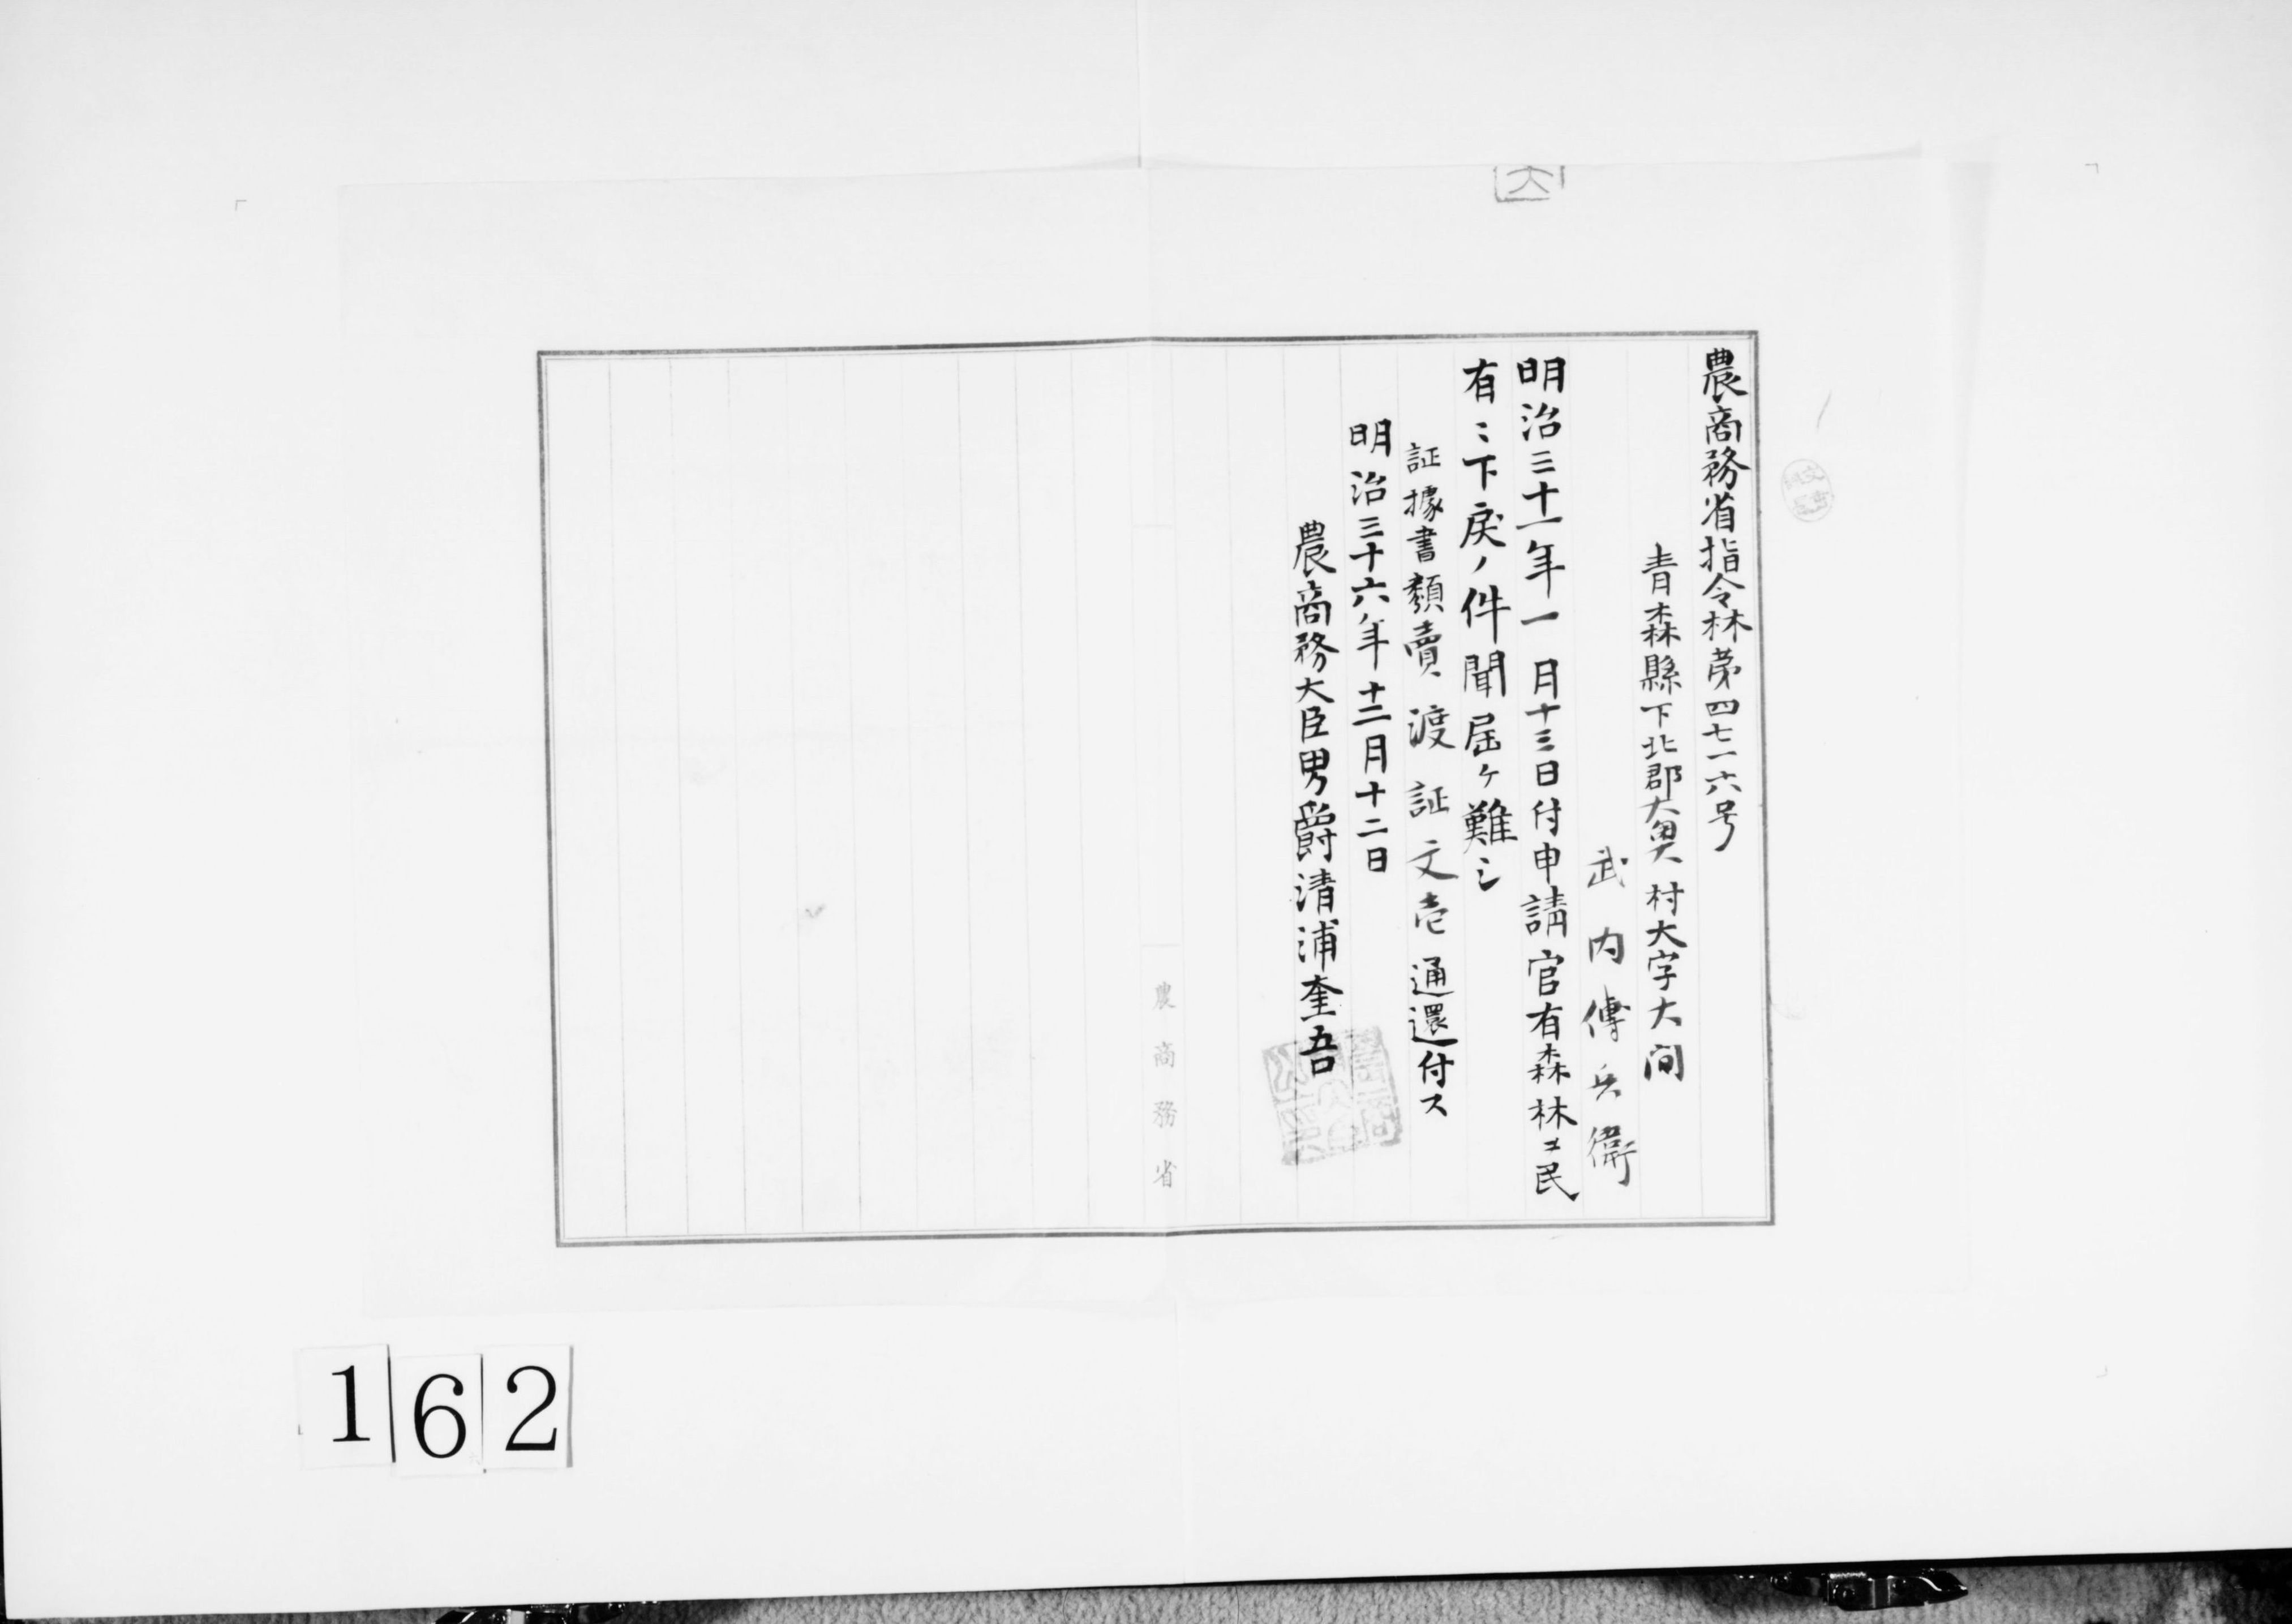 農商務省指令林第四七一六号
青森縣下北郡大奥村大字大间
武内傳兵衛
明治三十一年一月十三日付申請官有森林ヱ民
有ニ下戻ノ件聞届ケ難シ
証據書類賣渡証文壱通還付ス
明治三十六年十二月十二日
農商務大臣男爵清浦奎吾
農商務省
162